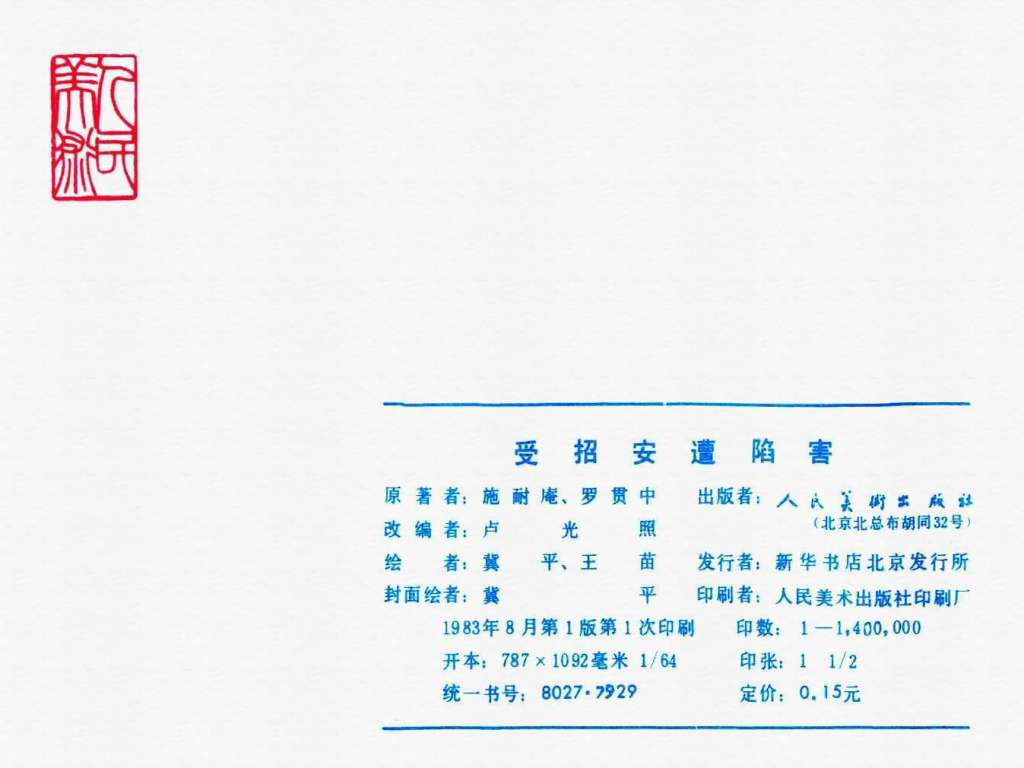 人民
美術
受招安遭陷害
原著者：施耐庵、罗贯中 出版者：人民美術出版社
（北京北总布胡同32号）
改编者：卢光照
绘者：冀平、王苗 发行者：新华书店北京发行所
封面绘者：冀平 印刷者：人民美术出版社印刷厂
1983年8月第1版第1次印刷 印数：1—1,400,000
开本：787×1092毫米 1/64 印张：1 1/2
统一书号：8027·7929 定价：0.15元